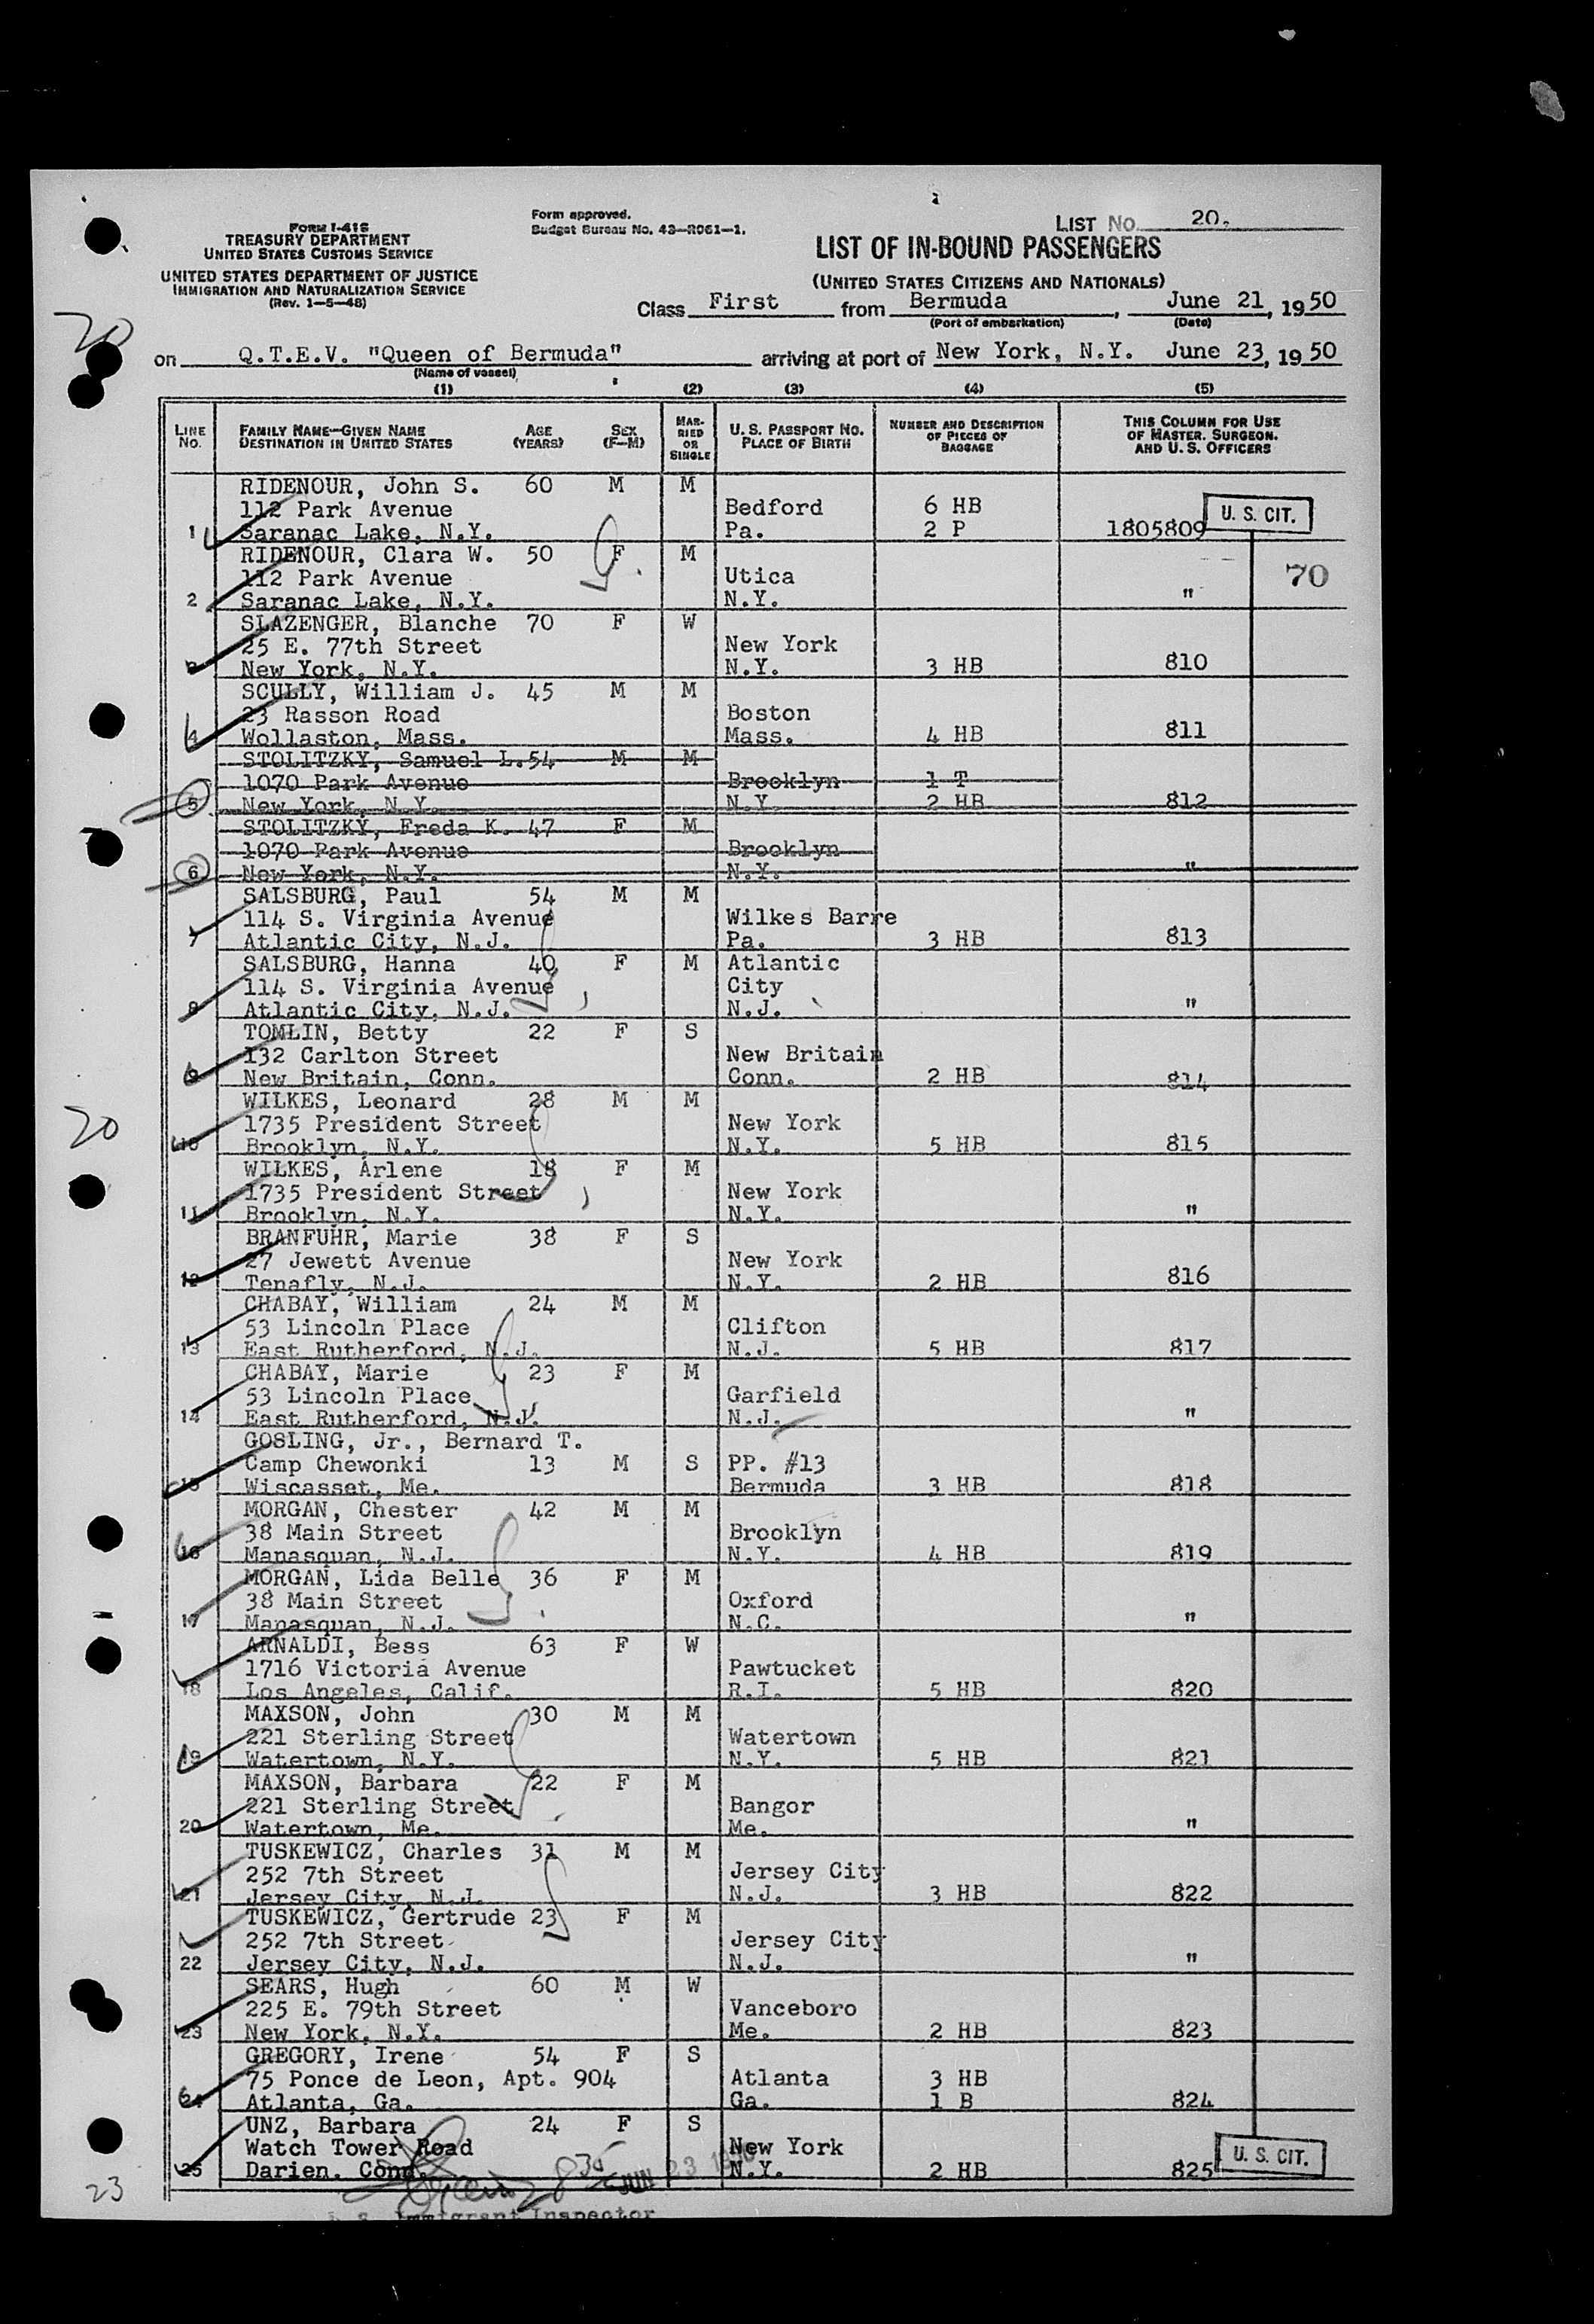 LIST NO. 20.
FORM I-418
TREASURY DEPARTMENT
UNITED STATES CUSTOMS SERVICE
UNITED STATES DEPARTMENT OF JUSTICE
IMMIGRATION AND NATURALIZATION SERVICE
(Rev. 1-5-48)
Form approved.
Budget Bureau No. 43-R061-1.
LIST OF IN-BOUND PASSENGERS
(UNITED STATES CITIZENS AND NATIONALS)
Class First from Bermuda, June 21, 1950
(Port of embarkation) (Date)
20
on Q.T.E.V. "Queen of Bermuda" arriving at port of New York, N.Y. June 23, 1950
(Name of vessel)
(1) (2) (3) (4) (5)
LINE NO. FAMILY NAME—GIVEN NAME DESTINATION IN UNITED STATES AGE (YEARS) SEX (F—M) MARRIED OR SINGLE U. S. PASSPORT NO. PLACE OF BIRTH NUMBER AND DESCRIPTION OF PIECES OF BAGGAGE THIS COLUMN FOR USE OF MASTER, SURGEON, AND U. S. OFFICERS
RIDENOUR, John S. 60 M M
112 Park Avenue Bedford 6 HB U. S. CIT.
1 Saranac Lake, N.Y. Pa. 2 P 1805809
RIDENOUR, Clara W. 50 F M
112 Park Avenue Utica 70
2 Saranac Lake, N.Y. N.Y. "
SLAZENGER, Blanche 70 F W
25 E. 77th Street New York
3 New York, N.Y. N.Y. 3 HB 810
SCULLY, William J. 45 M M
23 Rasson Road Boston
4 Wollaston, Mass. Mass. 4 HB 811
STOLITZKY, Samuel L. 54 M M
1070 Park Avenue Brooklyn 1 T
5 New York, N.Y. N.Y. 2 HB 812
STOLITZKY, Freda K. 47 F M
1070 Park Avenue Brooklyn
6 New York, N.Y. N.Y. "
SALSBURG, Paul 54 M M
114 S. Virginia Avenue Wilkes Barre
7 Atlantic City, N.J. Pa. 3 HB 813
SALSBURG, Hanna 40 F M Atlantic
114 S. Virginia Avenue City
8 Atlantic City, N.J. N.J. "
TOMLIN, Betty 22 F S
132 Carlton Street New Britain
9 New Britain, Conn. Conn. 2 HB 814
WILKES, Leonard 28 M M
20 1735 President Street New York
10 Brooklyn, N.Y. N.Y. 5 HB 815
WILKES, Arlene 18 F M
1735 President Street New York
11 Brooklyn, N.Y. N.Y. "
BRANFUHR, Marie 38 F S
27 Jewett Avenue New York
12 Tenafly, N.J. N.Y. 2 HB 816
CHABAY, William 24 M M
53 Lincoln Place Clifton
13 East Rutherford, N.J. N.J. 5 HB 817
CHABAY, Marie 23 F M
53 Lincoln Place Garfield
14 East Rutherford, N.J. N.J. "
GOSLING, Jr., Bernard T.
Camp Chewonki 13 M S PP. #13
15 Wiscasset, Me. Bermuda 3 HB 818
MORGAN, Chester 42 M M
38 Main Street Brooklyn
16 Manasquan, N.J. N.Y. 4 HB 819
MORGAN, Lida Belle 36 F M
38 Main Street Oxford
17 Manasquan, N.J. N.C. "
ARNALDI, Bess 63 F W
1716 Victoria Avenue Pawtucket
18 Los Angeles, Calif. R.I. 5 HB 820
MAXSON, John 30 M M
221 Sterling Street Watertown
19 Watertown, N.Y. N.Y. 5 HB 821
MAXSON, Barbara 22 F M
221 Sterling Street Bangor
20 Watertown, Me. Me. "
TUSKEWICZ, Charles 31 M M
252 7th Street Jersey City
21 Jersey City, N.J. N.J. 3 HB 822
TUSKEWICZ, Gertrude 23 F M
252 7th Street Jersey City
22 Jersey City, N.J. N.J. "
SEARS, Hugh 60 M W
225 E. 79th Street Vanceboro
23 New York, N.Y. Me. 2 HB 823
GREGORY, Irene 54 F S
75 Ponce de Leon, Apt. 904 Atlanta 3 HB
24 Atlanta, Ga. Ga. 1 B 824
UNZ, Barbara 24 F S
Watch Tower Road New York U. S. CIT.
25 Darien. Conn. N.Y. 2 HB 825
23 JUN 23
Immigrant Inspector